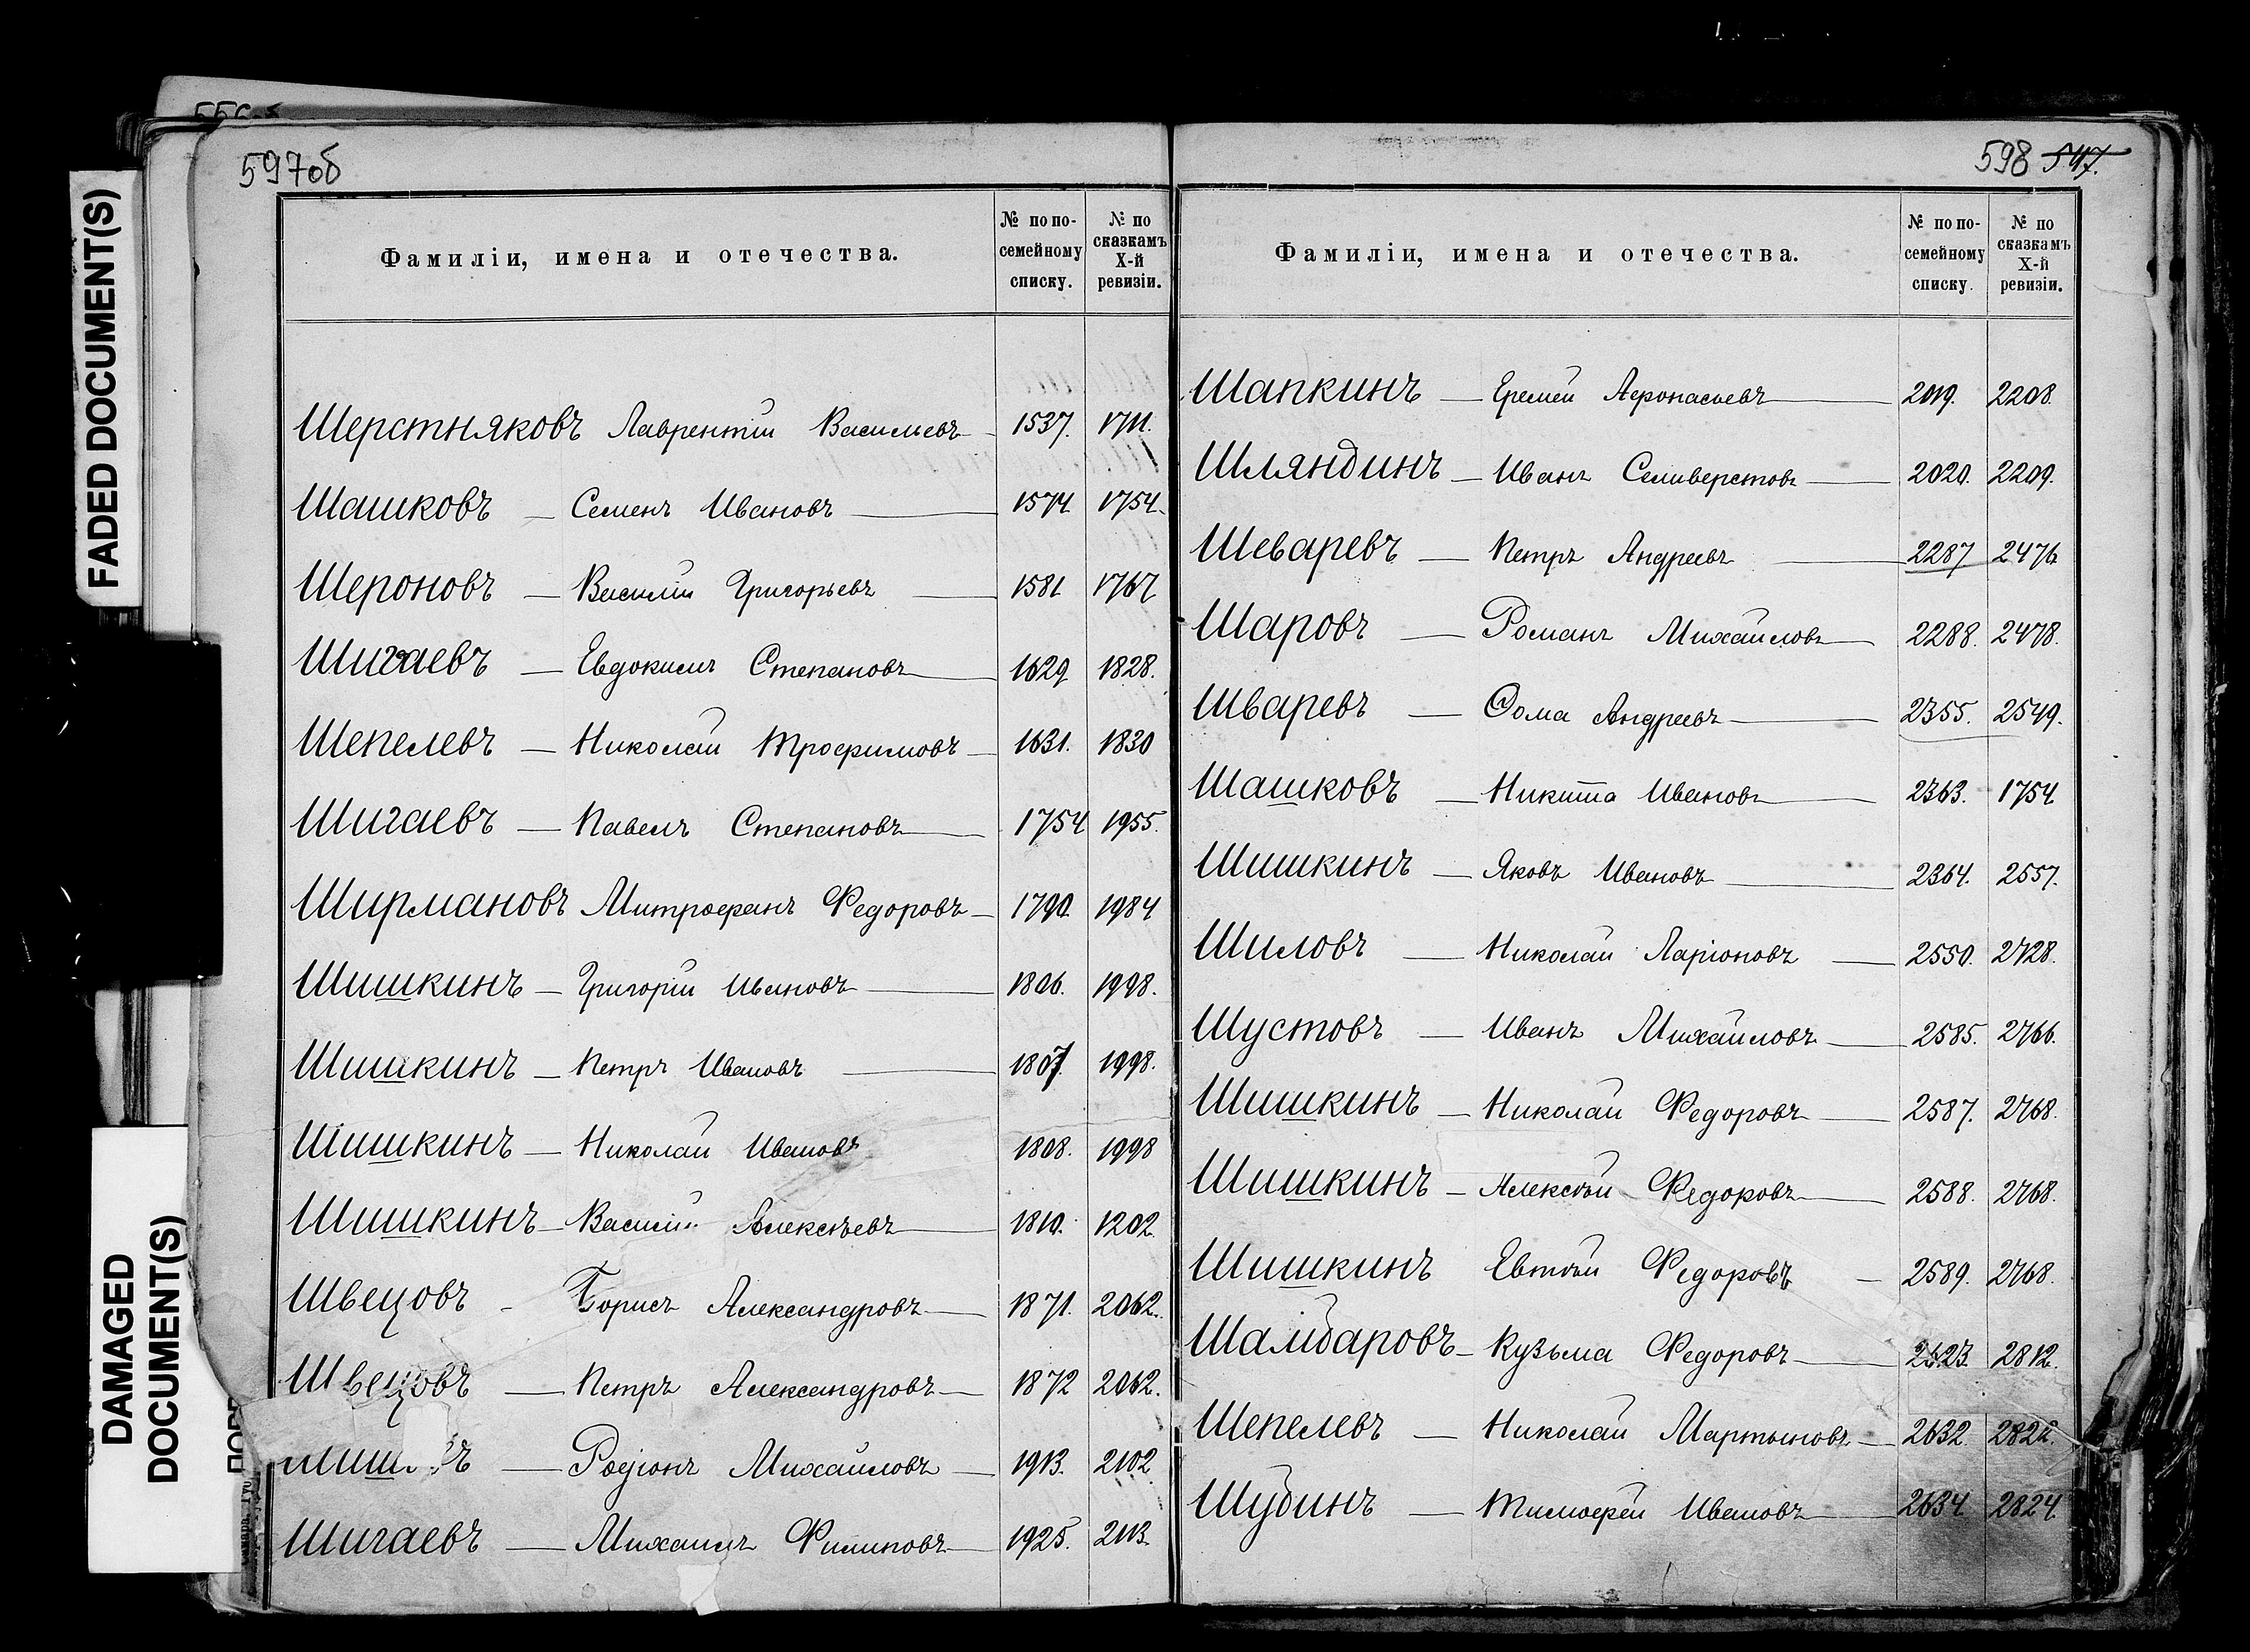 FADED DOCUMENT(S)
DAMAGED
DOCUMENT(S)
597об
Фамиліи, имена и отечества.
№ по по-
семейному
списку.
№ по
сказкамъ
X-й
ревизіи.
Шерстняковъ Лаврентій Васильевъ 1537. 1711.
Шашковъ — Семенъ Ивановъ — 1574 1754.
Шероновъ — Василій Григорьевъ — 1581 1767
Шигаевъ — Евдокимъ Степановъ — 1629 1828.
Шепелевъ — Николай Трофимовъ — 1631. 1830
Шигаевъ — Павелъ Степановъ — 1754 1955.
Ширмановъ Митрофанъ Федоровъ — 1790. 1984
Шишкинъ — Григорій Ивановъ — 1806. 1998.
Шишкинъ — Петръ Ивановъ — 1807. 1998.
Шишкинъ — Николай Ивановъ 1808. 1998
Шишкинъ — Василій Алексѣевъ — 1810. 1202.
Швецовъ — Борисъ Александровъ — 1871. 2062.
Швецовъ — Петръ Александровъ — 1872 2062.
— Родіонъ Михайловъ — 1913. 2102
Шигаевъ — Михаилъ Филиповъ — 1925. 2113.
598 547.
Фамиліи, имена и отечества.
№ по по-
семейному
списку.
№ по
сказкамъ
X-й
ревизіи.
Шапкинъ — Еремей Афонасьевъ — 2019. 2208.
Шляндинъ — Иванъ Селиверстовъ — 2020. 2209.
Шеваревъ — Петръ Андреевъ — 2287 2476
Шаровъ — Романъ Михайловъ — 2288. 2478.
Шваревъ — Ѳома Андреевъ — 2355. 2549.
Шашковъ — Никита Ивановъ — 2363. 1754
Шишкинъ — Яковъ Ивановъ — 2364. 2557.
Шиловъ — Николай Ларіоновъ — 2550. 2728.
Шустовъ — Иванъ Михайловъ — 2585. 2766.
Шишкинъ — Николай Федоровъ — 2587. 2768.
Шишкинъ — Алексѣй Федоровъ — 2588. 2768.
Шишкинъ Евтѣй Федоровъ — 2589. 2768.
Шамбаровъ — Кузьма Федоровъ — 2623. 2812.
Шепелевъ — Николай Мартыновъ — 2632. 2822.
Шубинъ — Тимофей Ивановъ — 2634 2824.